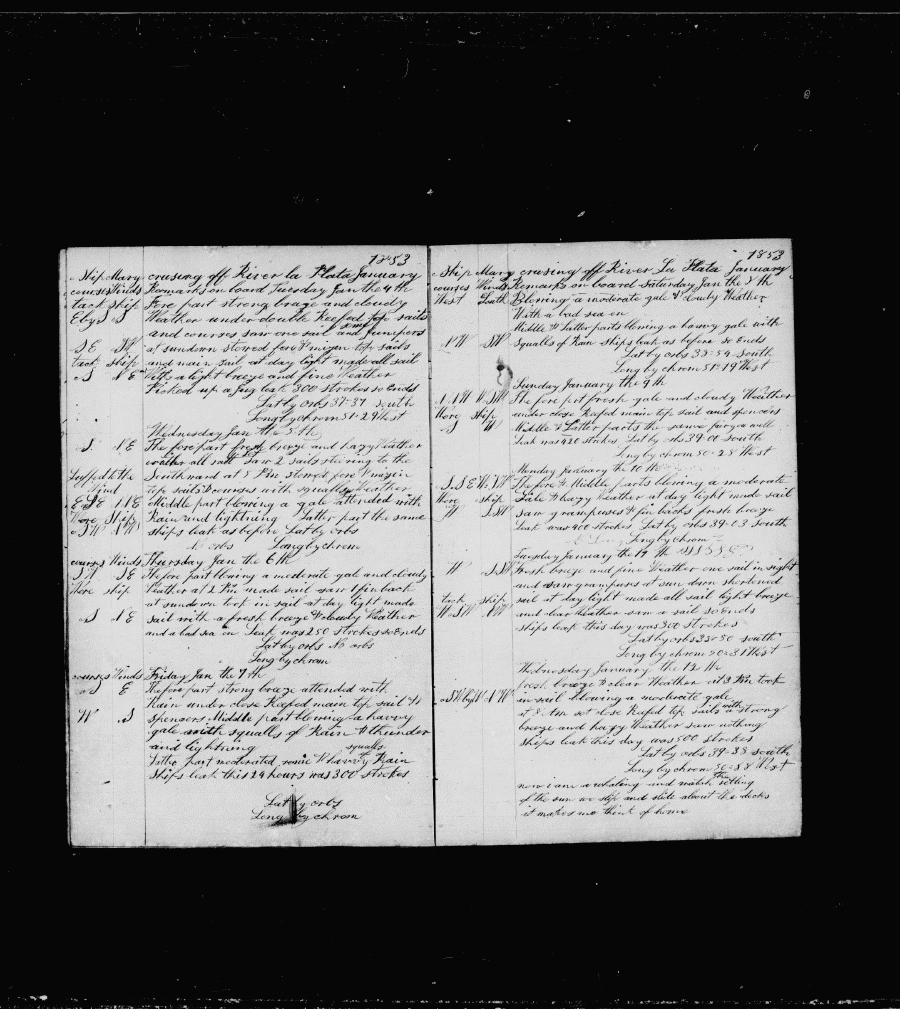 1853
Ship Mary crusing off River la Plata January
courses Winds Remarks on board Tuesday Jan the 4th
tack ship Fore part strong breze and cloudy
E by S S Weather under double Reefed top sails
and courses saw one sail and some junipers
S E SW at sundown stowed fore & mizen top sails
tack ship and main sail at day light made all sail
S N E With a light breze and fine Weather
Picked up a jug leak 300 strokes so Ends
Lat by orbs 37-37 South
Long by chrom 51-29 West
Wednesday Jan the 5th
S N E The fore part fresh breze and hazy Weather
all sail saw 2 sails stering to the
Southward at 8 Pm stowed fore & mizen
Wind top sails & courses with squally Weather
E S E N E Middle part blowing a gale attended with
Wore Ship Rain and lightning Latter part the same
S W N W ships leak as before Lat by orbs
No orbs Long by chrom
courses Winds Thursday Jan the 6th
S W S E The fore part blowing a moderate gale and cloudy
Wore ship Weather at 2 Pm made sail saw 1 fin back
at sundown took in sail at day light made
S N E sail with a fresh breze & cloudy Weather
and a bad sea on Leak was 250 strokes so Ends
Lat by orbs No orbs
Long by chrom
courses Winds Friday Jan the 7th
S E The fore part strong breze attended with
Rain under close Reafed main top sail &
W S spencers Middle part blowing a havvy
gale with squalls of Rain & thunder
and lightning
Latter part moderated some & havvy squalls of Rain
Ships leak this 24 hours was 300 strokes
Lat by orbs
Long by chrom
1853
Ship Mary crusing off River La Plata January
courses Winds Remarks on board Saturday Jan the 8th
West South Blowing a moderate gale & Cloudy Weather
With a bad sea on
Middle & Latter parts blowing a havvy gale with
N W SW squalls of Rain ships leak as before so Ends
Lat by orbs 38-54 South
Long by chrom 51-19 West
Sunday January the 9th
N N W W S W The fore part fresh gale and cloudy Weather
Wore ship under close Reafed main top sail and spencers
S W Middle & Latter parts the same
Leak was 420 strokes Lat by orbs 39-01 South
Long by chrom 50-28 West
Monday january the 10th
S S E W S W The fore & Middle parts blowing a moderate
Wore ship Gale & hazy Weather at day light made sail
W S SW saw grampuses & fin backs fresh breze
Leak was 400 strokes Lat by orbs 39-03 South
Long by chrom
Tuesday January the 11th
W S SW Fresh breze and fine Weather one sail in sight
and saw grampuses at sun down shortened
tack ship sail at day light made all sail light breze
W S W N W and clear Weather saw a sail so Ends
ships leak this day was 300 strokes
Lat by orbs 38-50 south
Long by chrom 50-31 West
Wednesday January the 12th
fresh breze & clear Weather at 3 Pm took
S W by W N W in sail blowing a moderate gale
at 8 Am set close Reafed top sails with a strong
breze and hazy Weather saw nothing
ships leak this day was 500 strokes
Lat by orbs 39-38 south
Long by chrom 50-58 West
now i am a whaling and watch the setting
of the sun we slip and slide about the decks
it makes me think of home